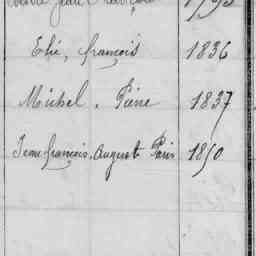 Jean François 1793
Elie, françois 1836
Michel, Piérre 1837
Jean françois. August Paris 1850